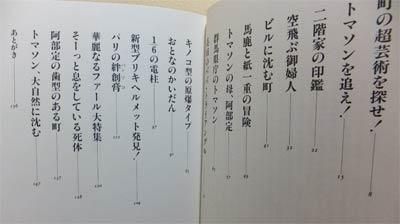 町の超芸術を探せ! 8
トマソンを追え! 15
二階家の印鑑 22
空飛ぶ御婦人 32
ビルに沈む町 41
馬鹿と紙一重の冒険 49
トマソンの母、阿部定
群馬県庁のトマソン
キノコ型の原爆タイプ
おとなのかいだん
1/6の電柱
新型ブリキヘルメット発見!
パリの絆創膏
華麗なるファール大特集
そーっと息をしている死体
阿部定の歯型のある町
トマソン、大自然に沈む
あとがき